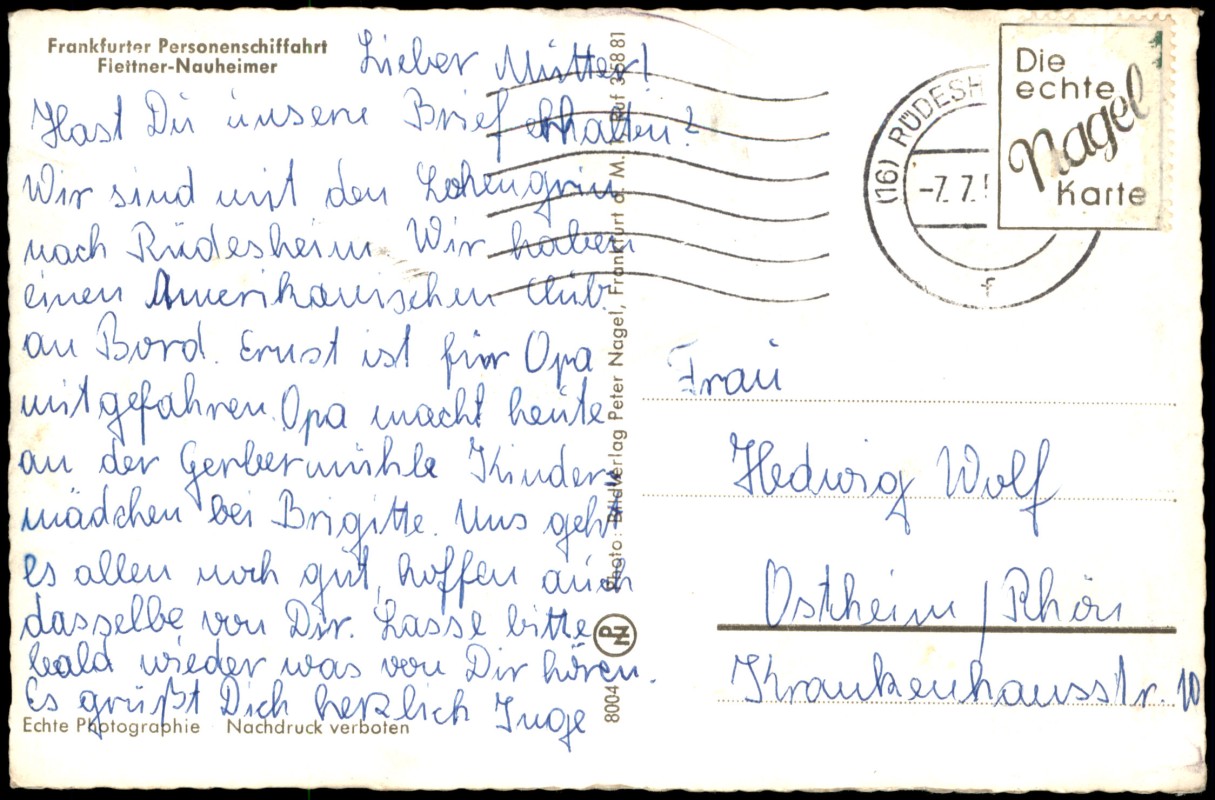 Frankfurter Personenschiffahrt
Flettner-Nauheimer
Lieber Mutter!
Hast Du unsere Brief erhalten?
Wir sind mit den Lohengrin
nach Rüdesheim. Wir haben
einen Amerikanischen Club
an Bord. Ernst ist für Opa
mitgefahren. Opa macht heute
an der Gerbermühle Kinder-
mädchen bei Brigitte. Uns geht
es allen noch gut, hoffen auch
dasselbe von Dir. Lasse bitte
bald wieder was von Dir hören.
Es grüßt Dich herzlich Inge
Echte Photographie Nachdruck verboten
8004 PN Photo: Bildverlag Peter Nagel, Frankfurt a. M. Ruf 35881
(16) RÜDESH
-7. 7.
f
Die
echte
Nagel
Karte
Frau
Hedwig Wolf
Ostheim/Rhön
Krankenhausstr. 10